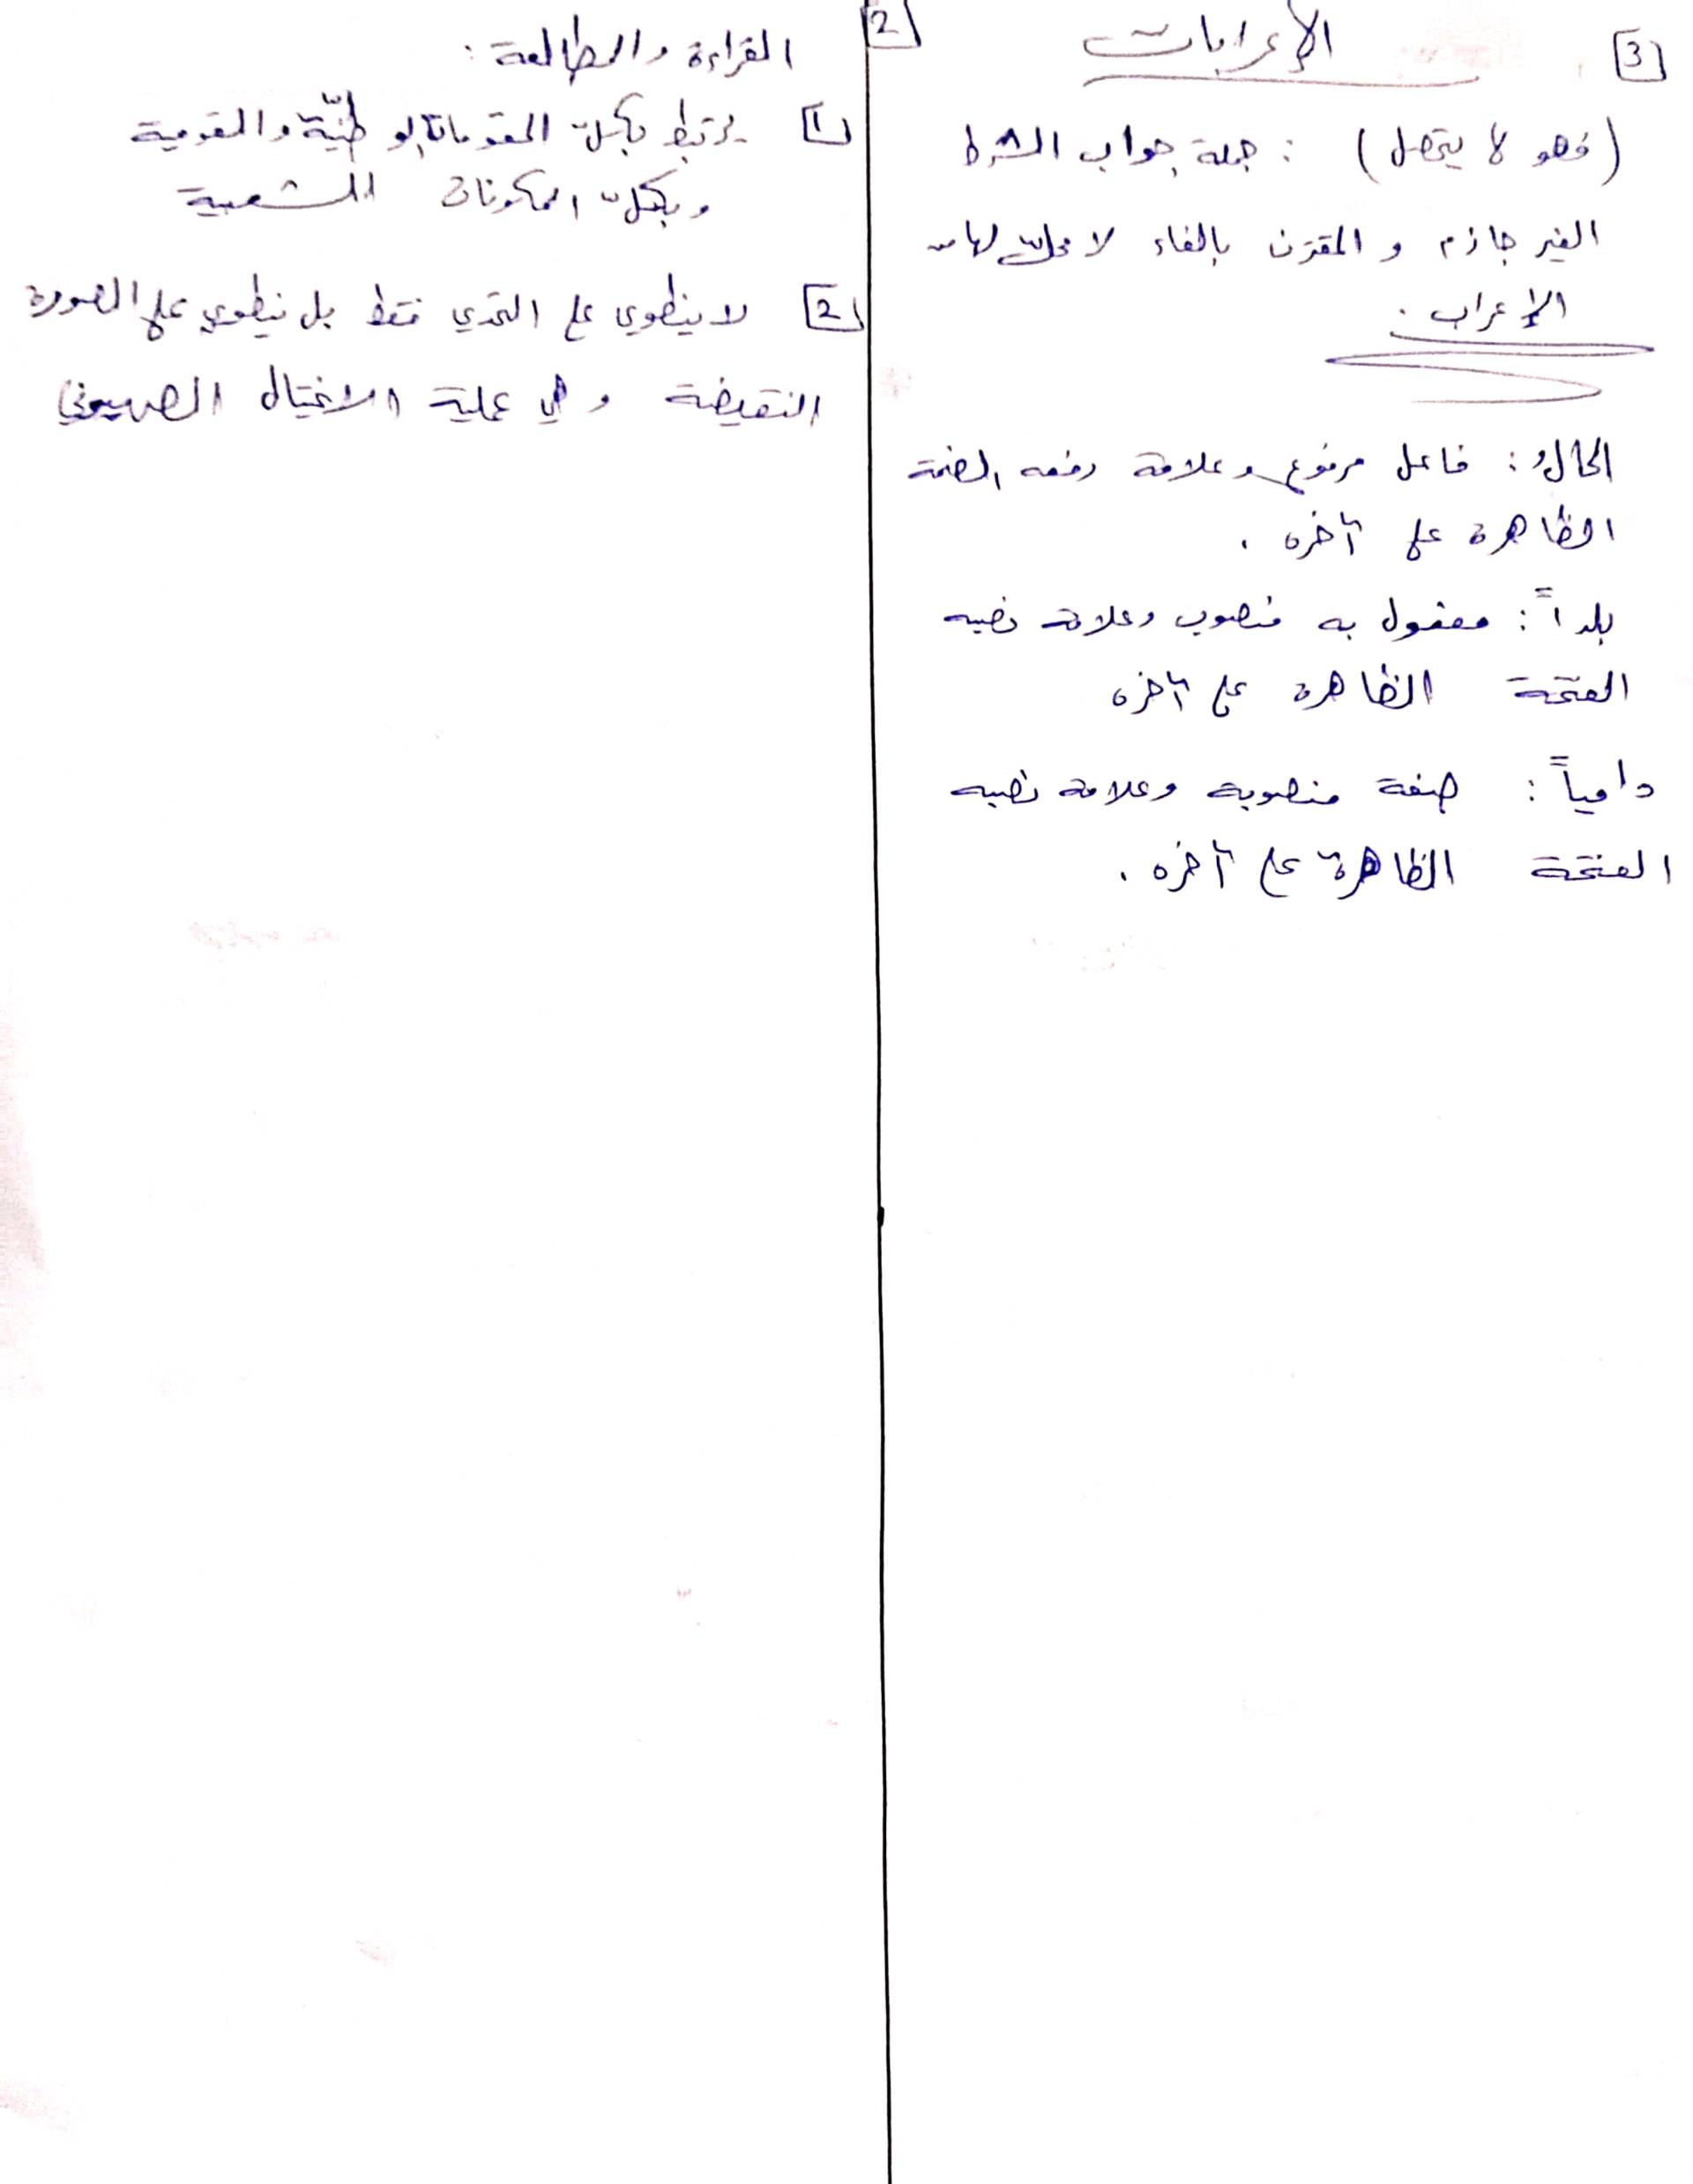 [3]
الإعرابات
(فهو لا يتصل) : جملة جواب الشرط
الغير جازم و المقترن بالفاء لا محلّ لها من
الإعراب .
الحالُ : فاعل مرفوع وعلامة رفعه الضمة
الظاهرة على آخره .
بلداً : مفعول به منصوب وعلامة نصبه
الفتحة الظاهرة على آخره
دامياً : صفة منصوبة وعلامة نصبه
الفتحة الظاهرة على آخره .
[2]
القراءة والمطالعة :
[1] يرتبط بكلّ المقومات الوطنيّة والقومية
وبكلّ المكونات الشعبية
[2] لا ينطوي على التحدي فقط بل ينطوي على الصورة
النقيضة وهي عملية الاغتيال الصهيوني